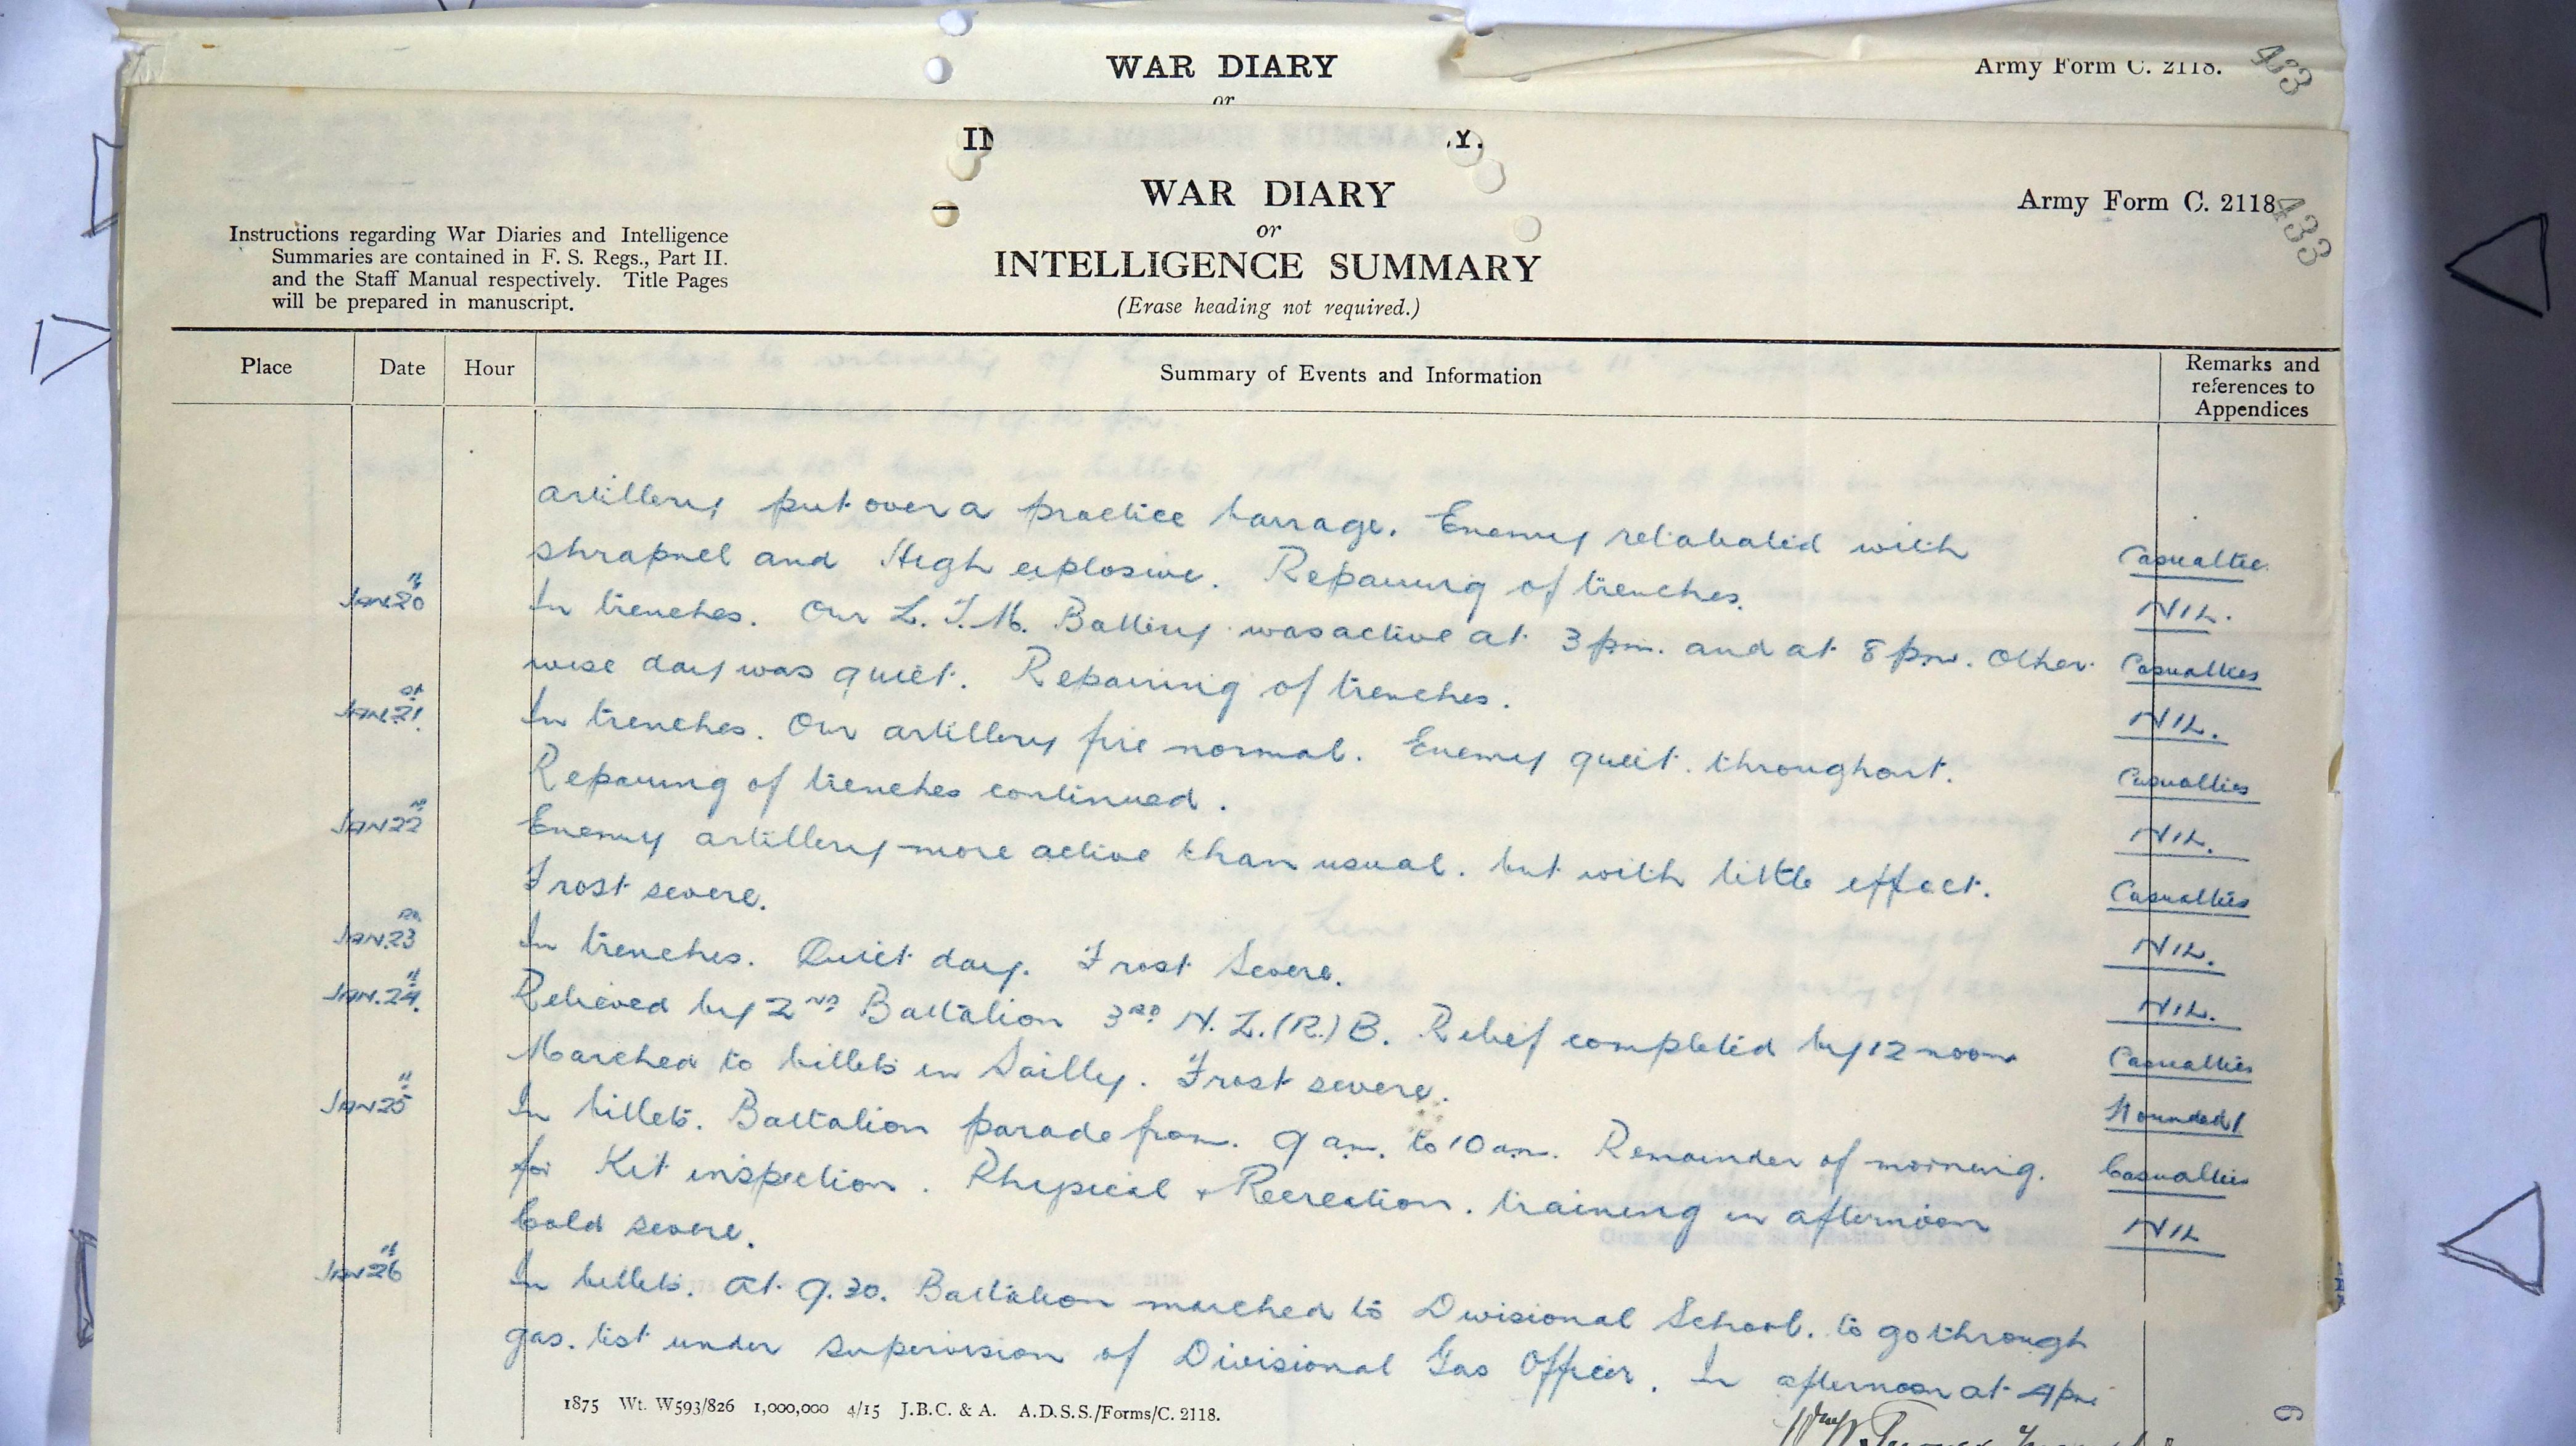 WAR DIARY
Army Form C. 2118.
433
or
IN
Y.
WAR DIARY
or
INTELLIGENCE SUMMARY
(Erase heading not required.)
Army Form C. 2118
433
Instructions regarding War Diaries and Intelligence
Summaries are contained in F. S. Regs., Part II.
and the Staff Manual respectively. Title Pages
will be prepared in manuscript.
Place Date Hour Summary of Events and Information Remarks and references to Appendices
artillery put over a practice barrage. Enemy retaliated with
shrapnel and High explosive. Repairing of trenches. Casualties
JAN 20th In trenches. Our L.T.M. Battery was active at 3 pm. and at 8 pm. Other NIL.
wise day was quiet. Repairing of trenches. Casualties
JAN. 21st In trenches. Our artillery fire normal. Enemy quiet. throughout. NIL.
Repairing of trenches continued. Casualties
JAN 22nd Enemy artillery more active than usual. but with little effect. NIL.
Frost severe. Casualties
JAN. 23rd In trenches. Quiet day. Frost Severe. NIL.
JAN. 24th Relieved by 2ND Battalion 3RD N.Z.(R.)B. Relief completed by 12 noon NIL.
Marched to billets in Sailly. Frost severe. Casualties
JAN 25th In billets. Battalion parade from. 9 am. to 10 am. Remainder of morning. Wounded 1
for Kit inspection. Physical + Recreation. training in afternoon Casualties
Cold severe. NIL
JAN 26th In billets. At 9.30. Battalion marched to Divisional School. to go through
gas. test under supervision of Divisional Gas Officer. In afternoon at 4 pm
1875 Wt. W593/826 1,000,000 4/15 J.B.C. & A. A.D.S.S./Forms/C. 2118.